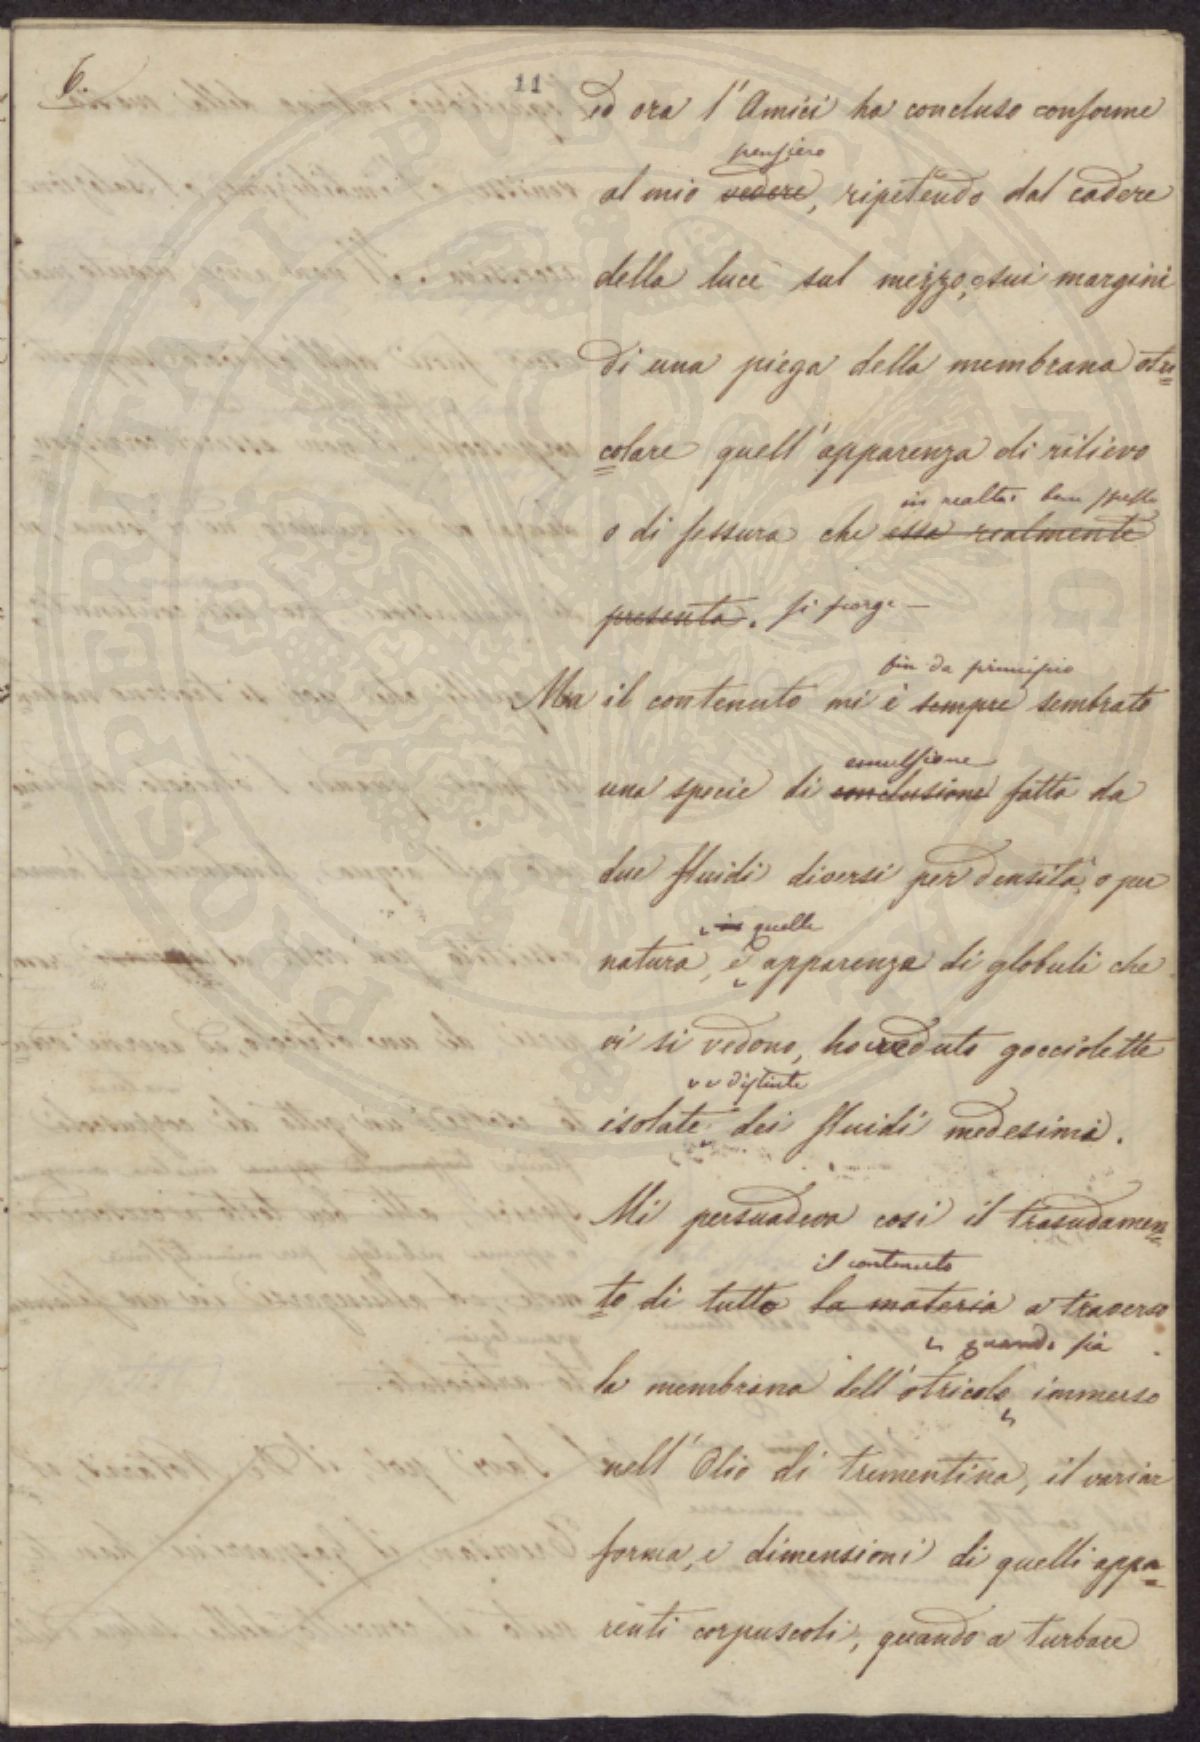 6.
11
ed ora l'Amici ha concluso conforme
pensiero
al mio vedere, ripetendo dal cadere
della luce sul mezzo, e sui margini
di una piega della membrana otri=
colare quell'apparenza di rilievo
in realtà ben spesso
o di fessura che essa realmente
presenta. si scorge —
fin da principio
Ma il contenuto mi è sempre sembrato
emulsione
una specie di conclusione fatta da
due fluidi diversi per densità, o per
in quella
natura, e apparenza di globuli che
vi si vedono, ho veduto gocciolette
distinte
isolate dei fluidi medesimi.
Mi persuadeva così il trasudamen=
il contenuto
to di tutto la materia a traverso
quando sia
la membrana dell'otricolo immerso
nell'Olio di trementina, il variar
forma, e dimensioni di quelli appa=
renti corpuscoli, quando a turbare